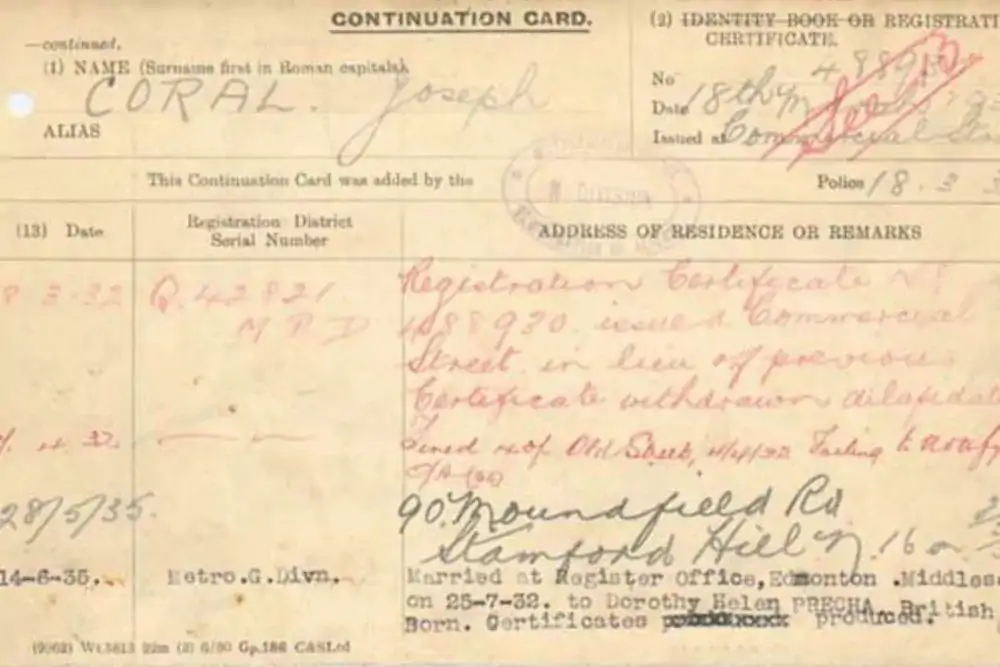 CONTINUATION CARD.
—continued.
(1) NAME (Surname first in Roman capitals).
CORAL. Joseph
ALIAS
(2) IDENTITY BOOK OR REGISTRATI
CERTIFICATE.
No 4889
Date 18th
Issued at Commercial St
This Continuation Card was added by the
Police 18. 3
DIVISION
(13) Date
Registration District
Serial Number
ADDRESS OF RESIDENCE OR REMARKS
8 3-32 Q.42821 Registration Certificate No
M P D 488930. issued Commercial
Street. in lieu of previous
Certificate withdrawn dilapidat
4. 32. Fined Old Street, Failing to
28/5/35. 90. Moundfield Rd
Stamford Hill N.16
14-6-35. Metro.G.Divn. Married at Register Office,Edmonton .Middles
on 25-7-32. to Dorothy Helen PRECHA. British
Born. Certificates produced.
(9962) Wt.5813 22m (2) 6/30 Gp.186 C&SLtd